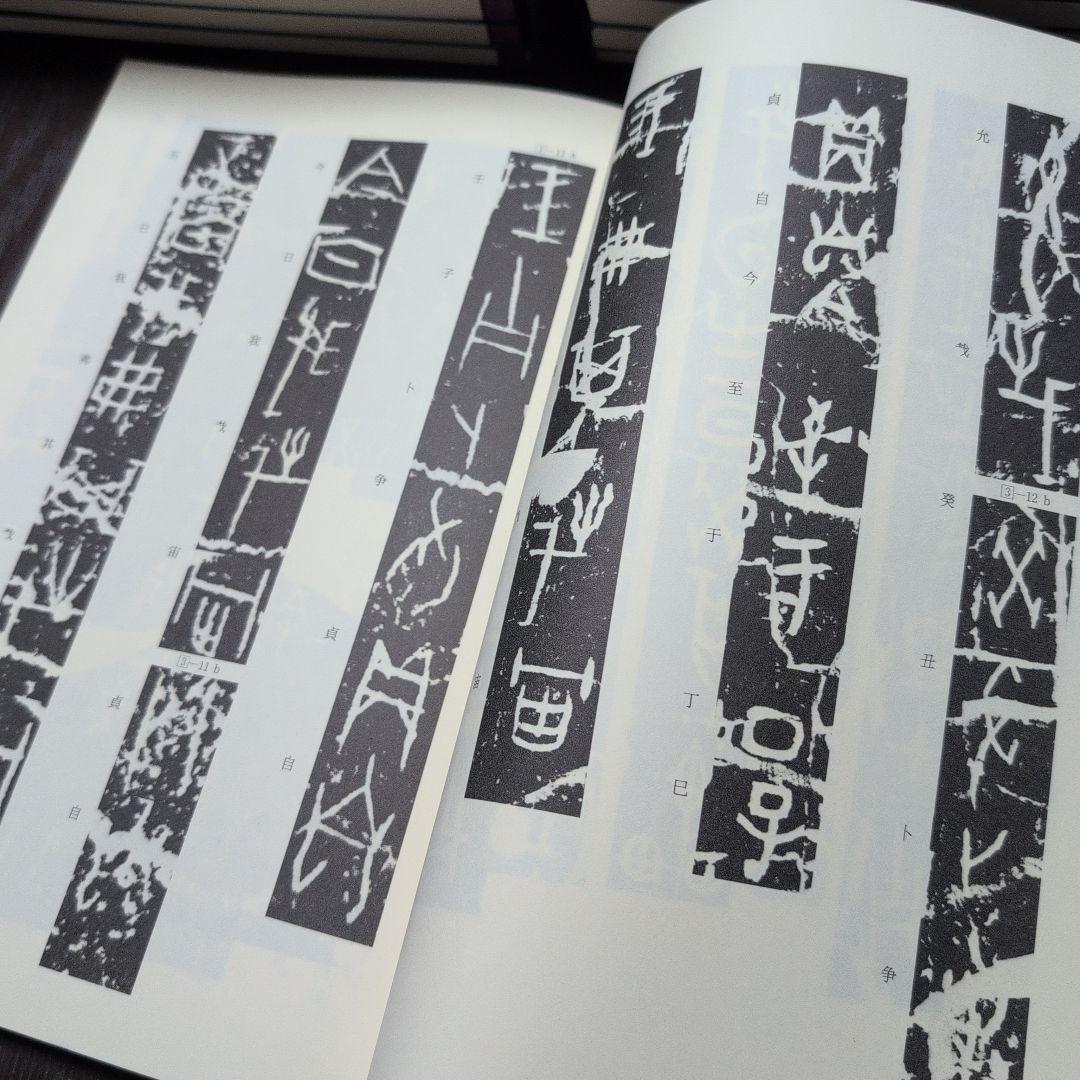 允𢦏
③-12 b
癸丑卜争
貞自今至于丁巳
③-11 a
壬子卜争貞自
今日我𢦏宙
③-11 b
貞自
五日我弗其𢦏